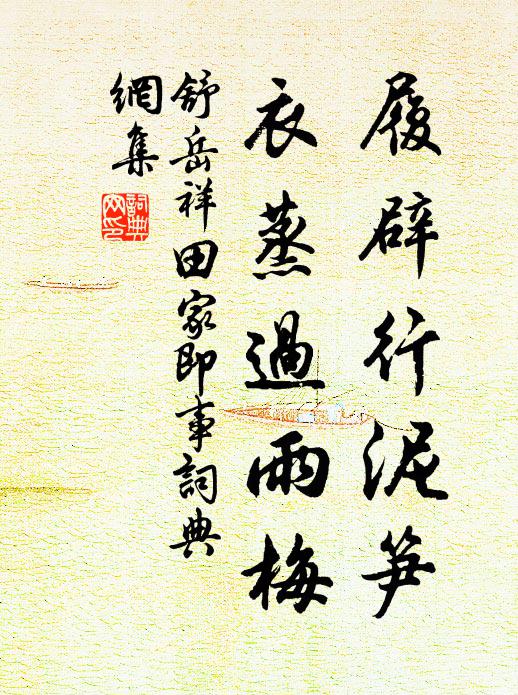 履辟行泥笋
衣蒸過雨梅
舒岳祥田家即事詞典
網集
詞典
网印